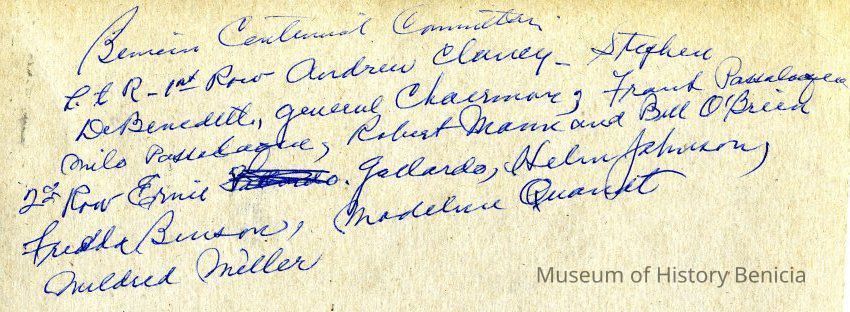 Benicia Centennial Committee
L to R - 1st Row Andrew Clancy - Stephen
DeBenedetti, General Chairman, Frank Passalaqua
Milo Passalaqua, Robert Mann and Bill O'Brien
2nd Row Ernie Gallardo, Helen Johnson,
Fredda Benson, Madeline Quandt
Mildred Miller
Museum of History Benicia